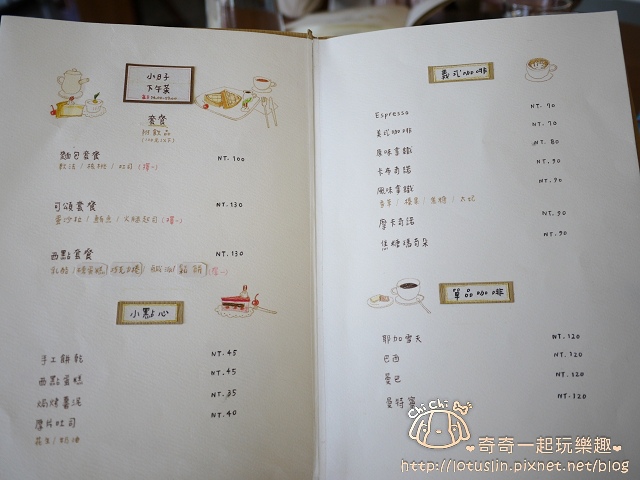 小日子
下午茶
套餐
附飲品
麵包套餐
NT. 100
軟法 / 核桃 / 吐司 (擇一)
可頌套餐
NT. 130
薯沙拉 / 鮪魚 / 火腿起司 (擇一)
西點套餐
NT. 130
(擇一)
小點心
手工餅乾
NT. 45
西點蛋糕
NT. 45
焗烤薯泥
NT. 35
厚片吐司
NT. 40
花生 / 奶油
義式咖啡
Espresso
NT. 70
美式咖啡
NT. 70
原味拿鐵
NT. 80
卡布奇諾
NT. 90
風味拿鐵
NT. 90
香草 / 榛果 / 焦糖 /
摩卡奇諾
NT. 90
焦糖瑪奇朵
NT. 90
單品咖啡
耶加雪夫
NT. 120
巴西
NT. 120
曼巴
NT. 120
曼特寧
NT. 120
Chi Chi
奇奇一起玩樂趣
http://lotuslin.pixnet.net/blog